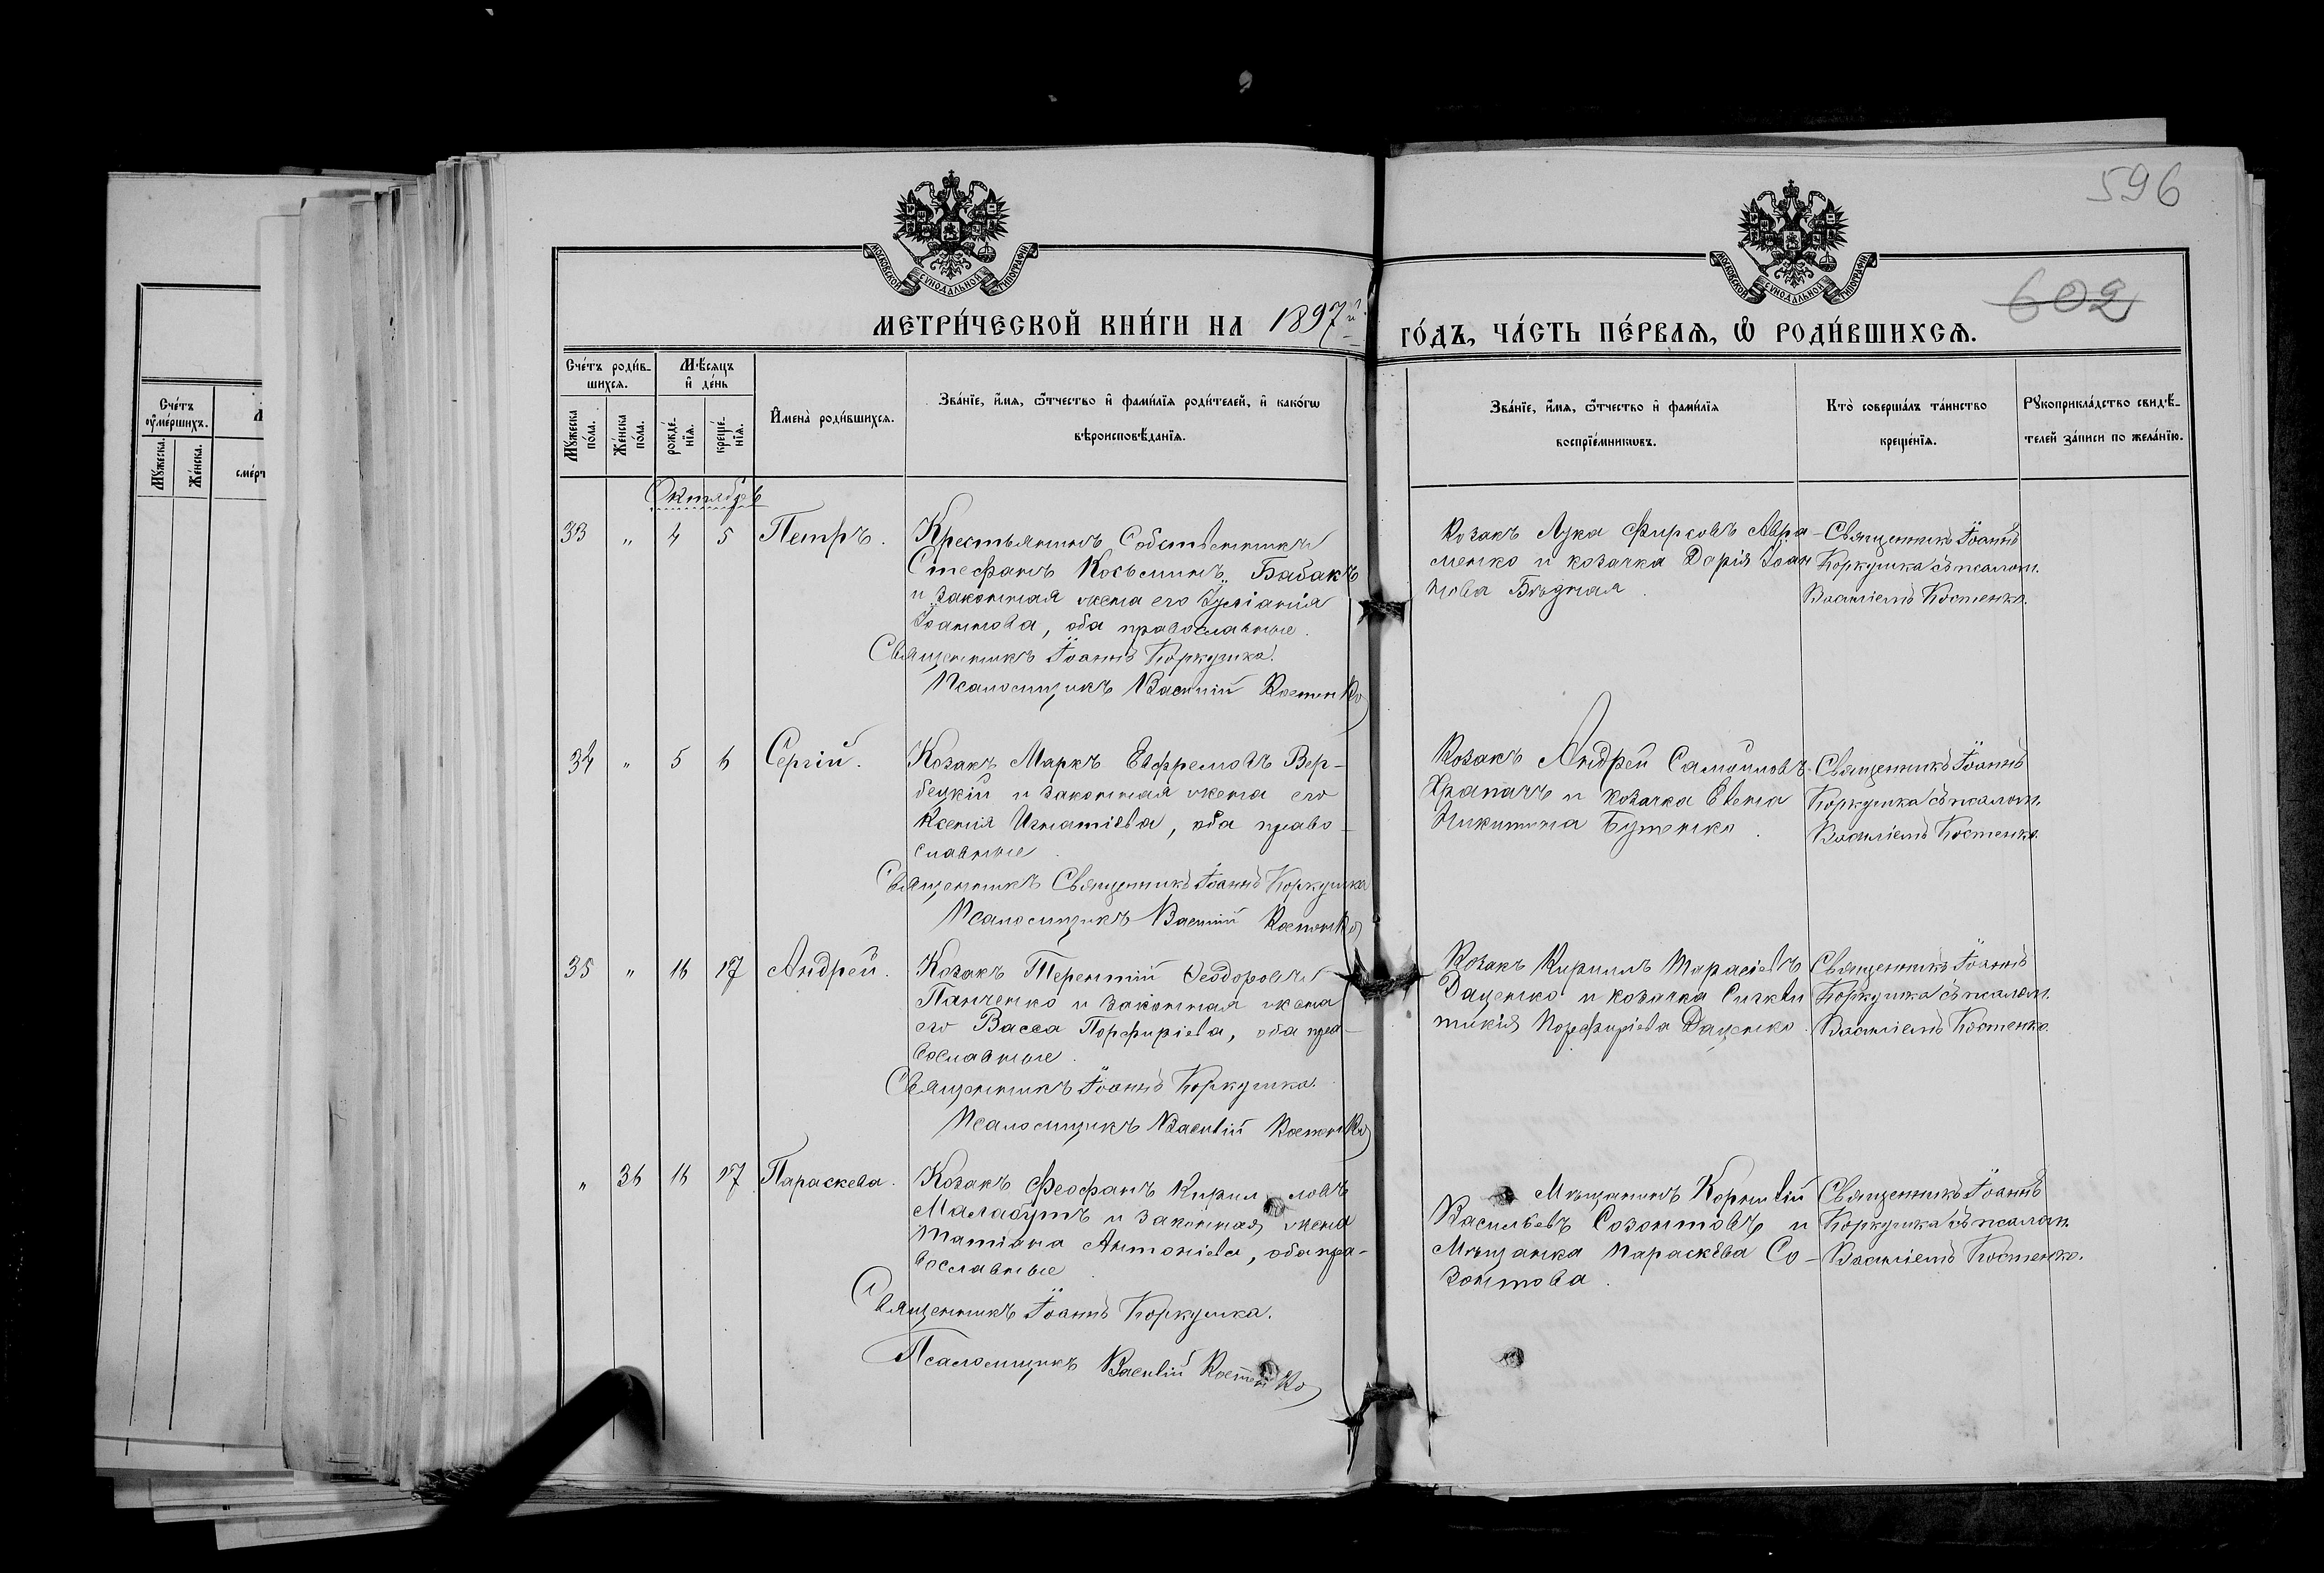 596
602
МОСКОВСКОЙ СѴНОДАЛЬНОЙ ТИПОГРАФІИ
МОСКОВСКОЙ СѴНОДАЛЬНОЙ ТИПОГРАФІИ
МЕТРИ́ЧЕСКОЙ КНИ́ГИ НА 1897й
ГО́ДЪ, ЧА́СТЬ ПЕ́РВАѦ, Ѽ РОДИ́ВШИХСѦ.
Сче́тъ
оу҆ме́ршихъ.
Мꙋжеска.
Же́нска.
Сче́тъ роди́в-
шихсѧ.
Мꙋжеска
по́ла.
Же́нска
по́ла.
Мѣ́сѧцъ
и҆ де́нь
рожде́-
нїѧ.
креще́-
нїѧ.
И҆мена̀ роди́вшихсѧ.
Зва́нїе, и҆́мѧ, ѻ҆́тчество и҆ фами́лїѧ роди́телей, и҆ како́гѡ
вѣроисповѣ́данїѧ.
Зва́нїе, и҆́мѧ, ѻ҆́тчество и҆ фами́лїѧ
воспрїе́мникѡвъ.
Кто̀ соверша́лъ та́инство
креще́нїѧ.
Рꙋкоприкла́дство свидѣ́-
телей за́писи по жела́нїю.
Октябрь
33 „ 4 5 Петръ.
Крестьянинъ Собственникъ
Стефанъ Косьминъ Бабакъ
и законная жена его Іуліанія
Іоаннова, оба православные.
Священникъ Іоаннъ Коркушка.
Псаломщикъ Василій Костенко
Козакъ Лука Фирсовъ Авра-
менко и козачка Дарія Іоан
нова Бѣдная.
Священникъ Іоаннъ
Коркушка съ псалом.
Василіемъ Костенко.
34 „ 5 6 Сергій.
Козакъ Маркъ Евфремовъ Вер-
бецкій и законная жена его
Ксенія Игнатіева, оба право-
славные.
Священникъ Священникъ Іоаннъ Коркушка
Псаломщикъ Василій Костенко
Козакъ Андрей Самойловъ
Храпачъ и козачка Евгена
Никитина Бутенко.
Священникъ Іоаннъ
Коркушка съ псалом.
Василіемъ Костенко.
35 „ 16 17 Андрей.
Козакъ Терентій Ѳеодоровъ
Панченко и законная жена
его Васса Порфиріева, оба пра-
вославные.
Священникъ Іоаннъ Коркушка.
Псаломщикъ Василій Костенко
Козакъ Кириллъ Тарасіевъ
Даценко и козачка Синкли
тикія Порфиріева Даценко.
Священникъ Іоаннъ
Коркушка съ псалом.
Василіемъ Костенко.
„ 36 16 17 Параскева.
Козакъ Феофанъ Кирилловъ
Малабутъ и законная жена
Татіана Антоніева, оба пра-
вославные.
Священникъ Іоаннъ Коркушка.
Псаломщикъ Василій Костенко
Мѣщанинъ Корнилій
Васильевъ Созонтовъ и
Мѣщанка Параскева Со-
зонтова.
Священникъ Іоаннъ
Коркушка съ псалом.
Василіемъ Костенко.